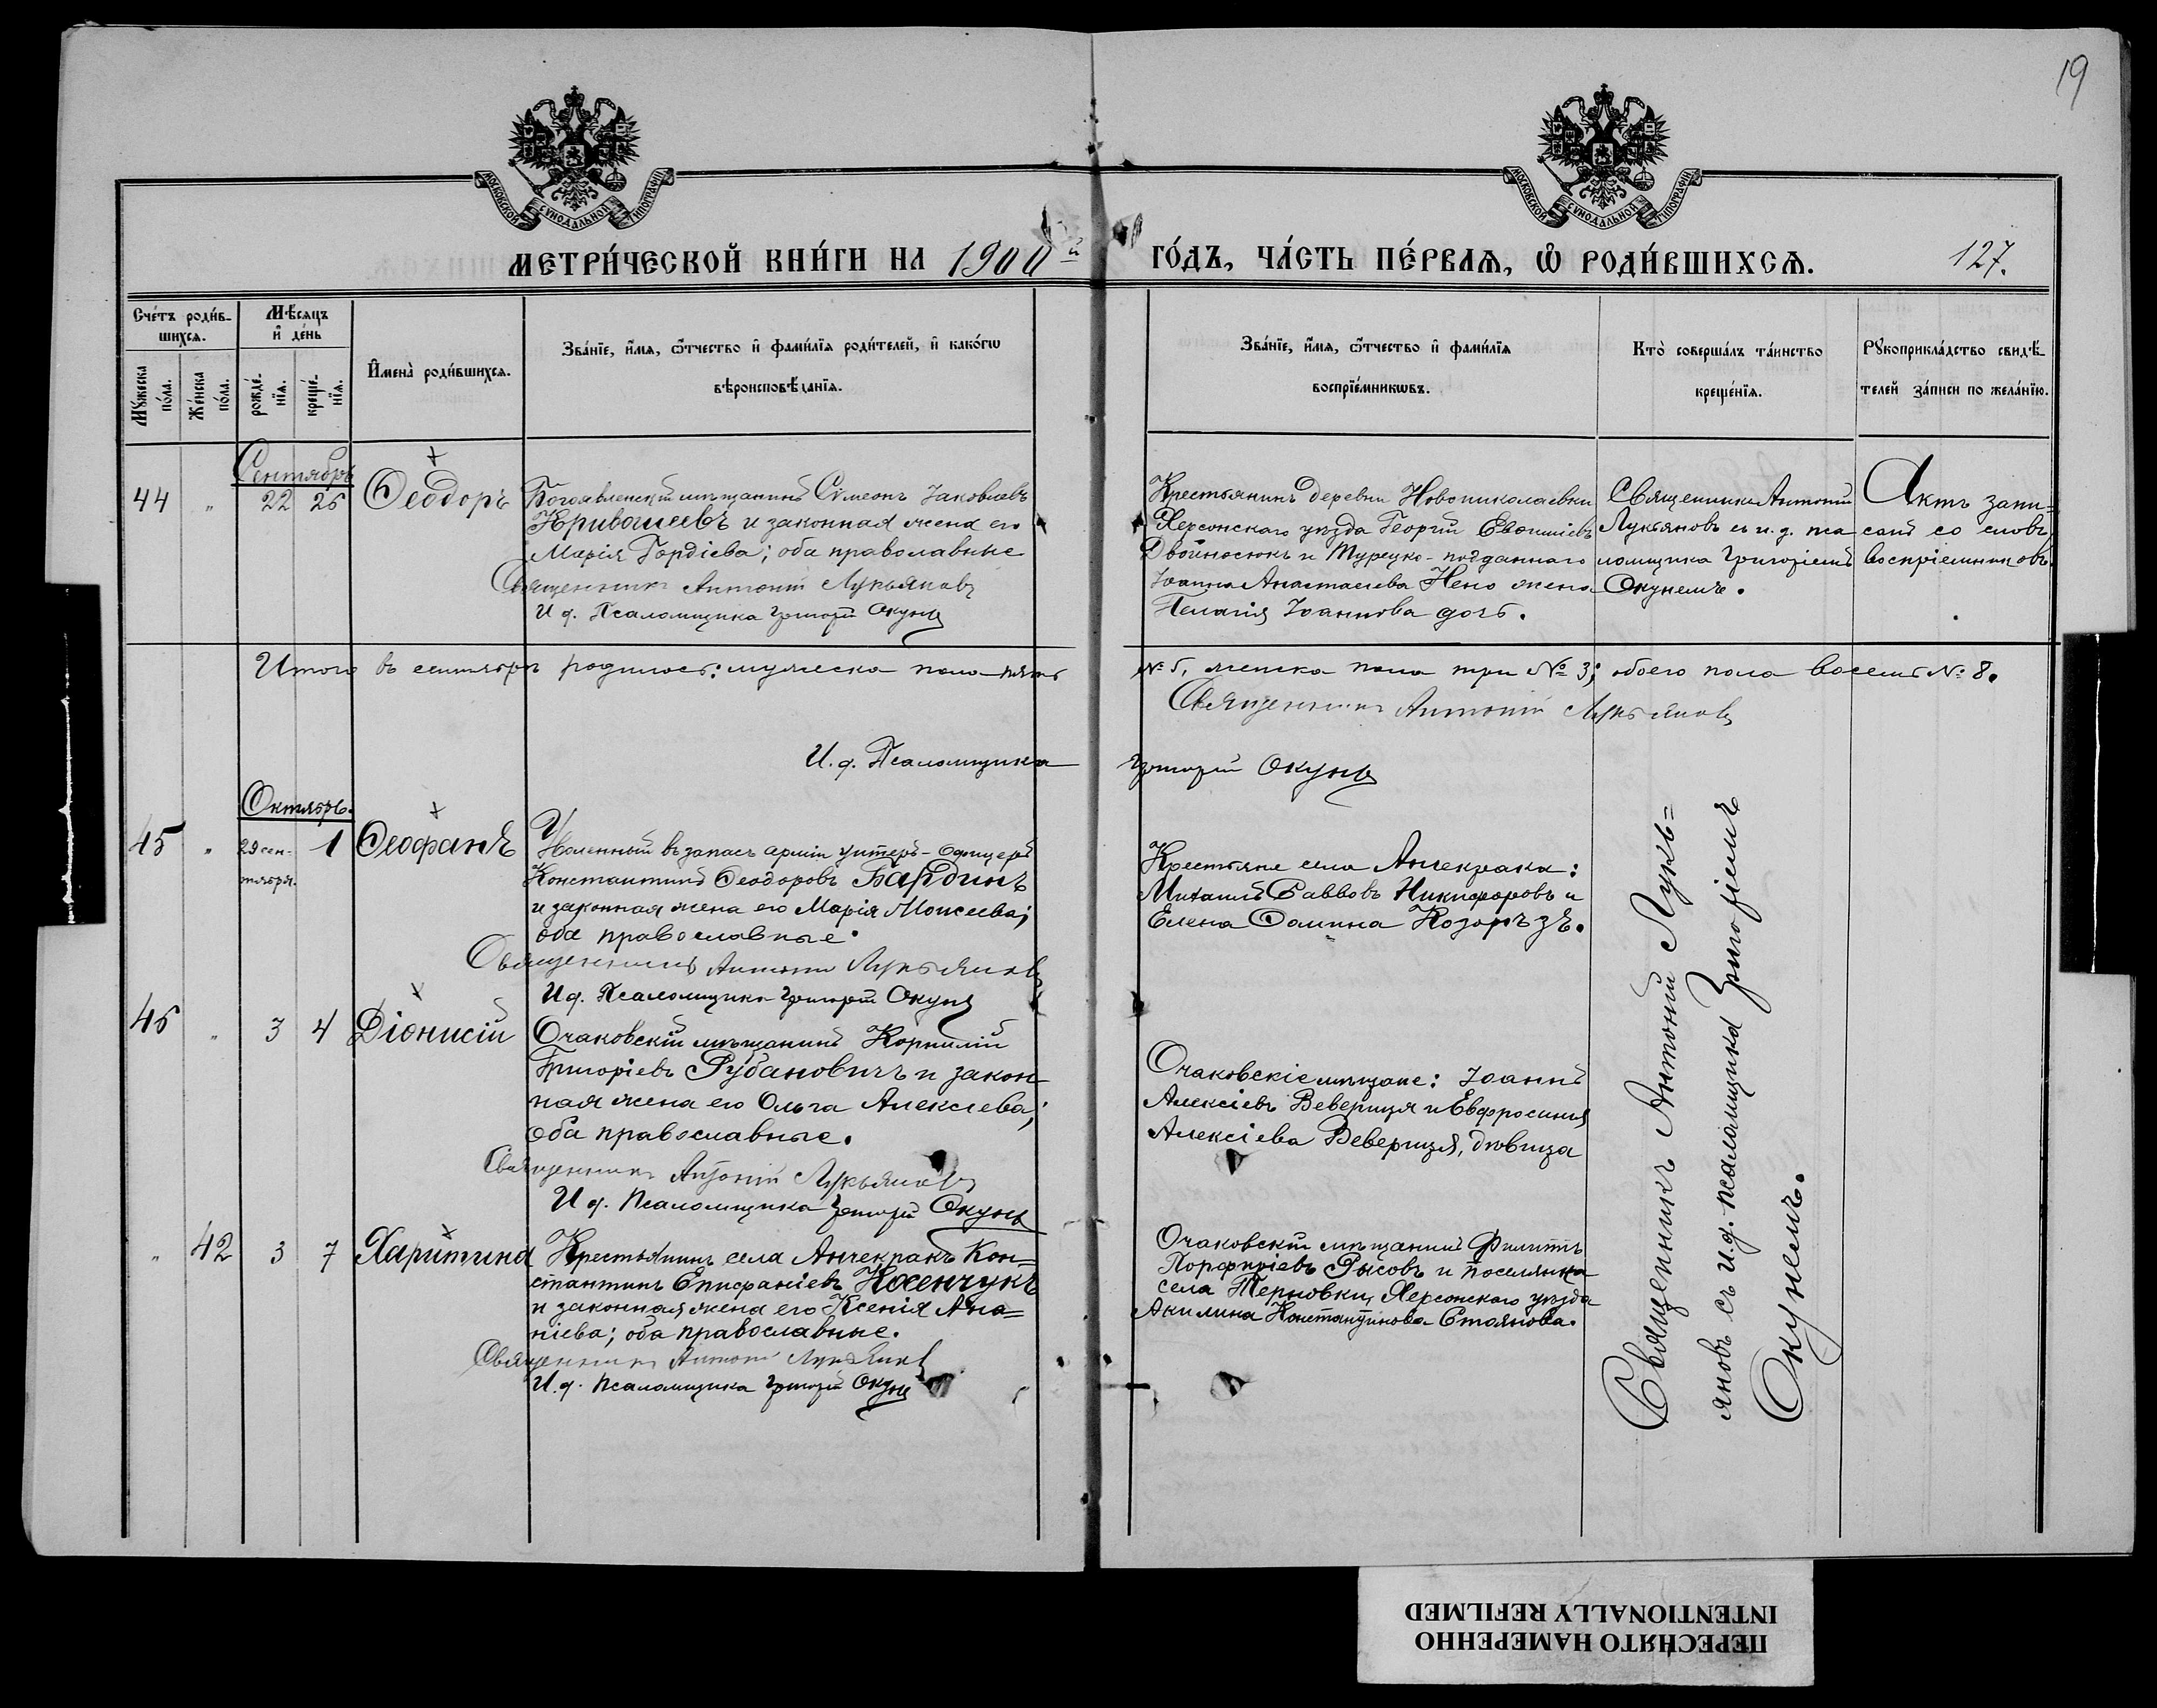 19
МОСКОВСКОЙ СѴНОДАЛЬНОЙ ТИПОГРАФІИ
МОСКОВСКОЙ СѴНОДАЛЬНОЙ ТИПОГРАФІИ
МЕТРИ́ЧЕСКОЙ КНИ́ГИ НА 1900й ГО́ДЪ, ЧА́СТЬ ПЕ́РВАѦ, Ѡ РОДИ́ВШИХСѦ. 127.
Сче́тъ роди́в-
шихсѧ.
Мѣ́сѧцъ
и҆ де́нь
Мꙋ́жеска
по́ла.
Же́нска
по́ла.
рожде́-
нїѧ.
креще́-
нїѧ.
И҆мена̀ роди́вшихсѧ.
Зва́нїе, и҆́мѧ, ѻ҆́тчество и҆ фами́лїѧ роди́телей, и҆ како́гѡ
вѣроисповѣ́данїѧ.
Зва́нїе, и҆́мѧ, ѻ҆́тчество и҆ фами́лїѧ
воспрїе́мникѡвъ.
Кто̀ соверша́лъ та́инство
креще́нїѧ.
Рꙋкоприкла́дство свидѣ́-
телей за́писи по жела́нїю.
Сентябрь
44 " 22 25 Ѳеодоръ
Богоявленскій мѣщанинъ Сѵмеонъ Іаковлевъ
Кривошеевъ и законная жена его
Марія Гордіева; оба православные
Священникъ Антоній Лукьяновъ
И. д. Псаломщика Григорій Окунь
Крестьянинъ деревни Новониколаевки
Херсонскаго уѣзда Георгій Евѳиміевъ
Двойносюкъ и Турецко-подданнаго
Іоанна Анастасіева жена
Пелагія Іоаннова дочь.
Священникъ Антоній
Лукьяновъ съ и. д. пса
ломщика Григоріемъ
Окунемъ.
Актъ запи=
санъ со словъ
воспріемниковъ.
Итого въ сентябрѣ родилось: мужеска пола пять № 5, женска пола три № 3; обоего пола восемь № 8.
Священникъ Антоній Лукьяновъ
И. д. Псаломщика Григорій Окунь
Октябрь.
45 " 29 сен-
тября. 1 Ѳеофанъ
Уволенный въ запасъ арміи унтеръ-офицеръ
Константинъ Ѳеодоровъ Бардинъ
и законная жена его Марія Моисеева;
оба православные.
Священникъ Антоній Лукьяновъ
И. д. Псаломщика Григорій Окунь
Крестьяне села Анчекрака:
Михаилъ Савовъ Никифоровъ и
Елена Ѳомина
46 " 3 4 Діонисій
Очаковскій мѣщанинъ Корнилій
Григоріевъ Рубановичъ и закон-
ная жена его Ольга Алексіева;
оба православные.
Священникъ Антоній Лукьяновъ
И. д. Псаломщика Григорій Окунь
Очаковскіе мѣщане: Іоаннъ
Алексіевъ Веверица и Евфросинія
Алексіева Веверица, дѣвица
" 42 3 7 Харитина
Крестьянинъ села Анчекракъ Кон=
стантинъ Епифаніевъ Косенчукъ
и законная жена его Ксенія Ана=
ніева; оба православные.
Священникъ Антоній Лукьяновъ
И. д. Псаломщика Григорій Окунь
Очаковскій мѣщанинъ Филиппъ
Порфиріевъ Рысовъ и поселянка
села Терновки, Херсонскаго уѣзда
Акилина Константинова Стоянова.
Священникъ Антоній Лукь=
яновъ съ и. д. псаломщика Григоріемъ
Окунемъ.
ПЕРЕСНЯТО НАМЕРЕННО
INTENTIONALLY REFILMED